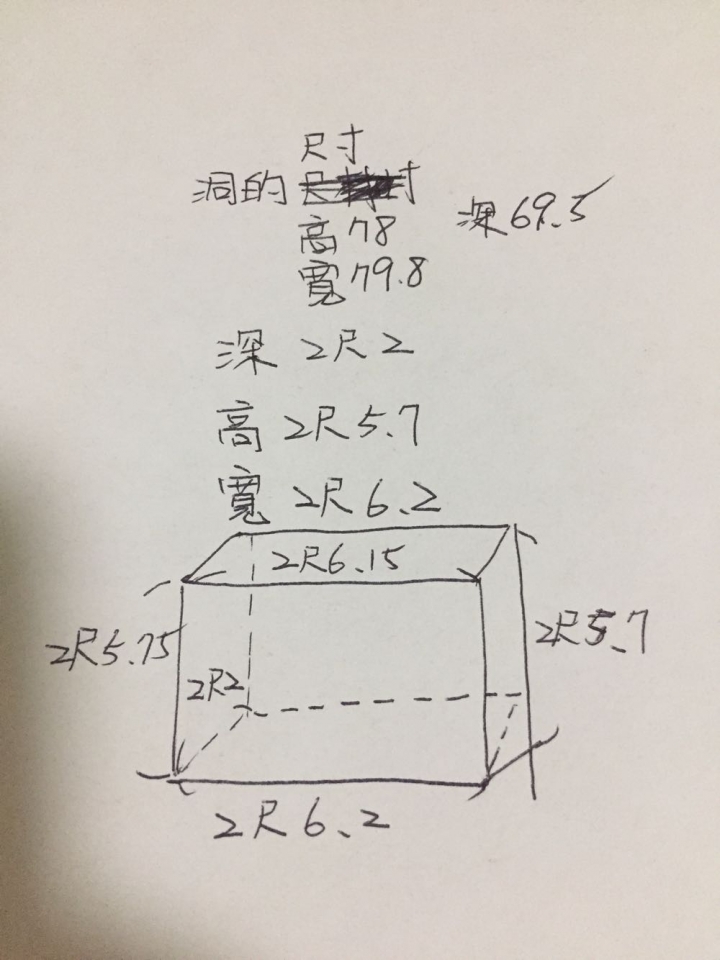 尺寸
洞的
高78
深69.5
寬79.8
深 2尺2
高 2尺5.7
寬 2尺6.2
2尺6.15
2尺5.75
2尺5.7
2尺2
2尺6.2